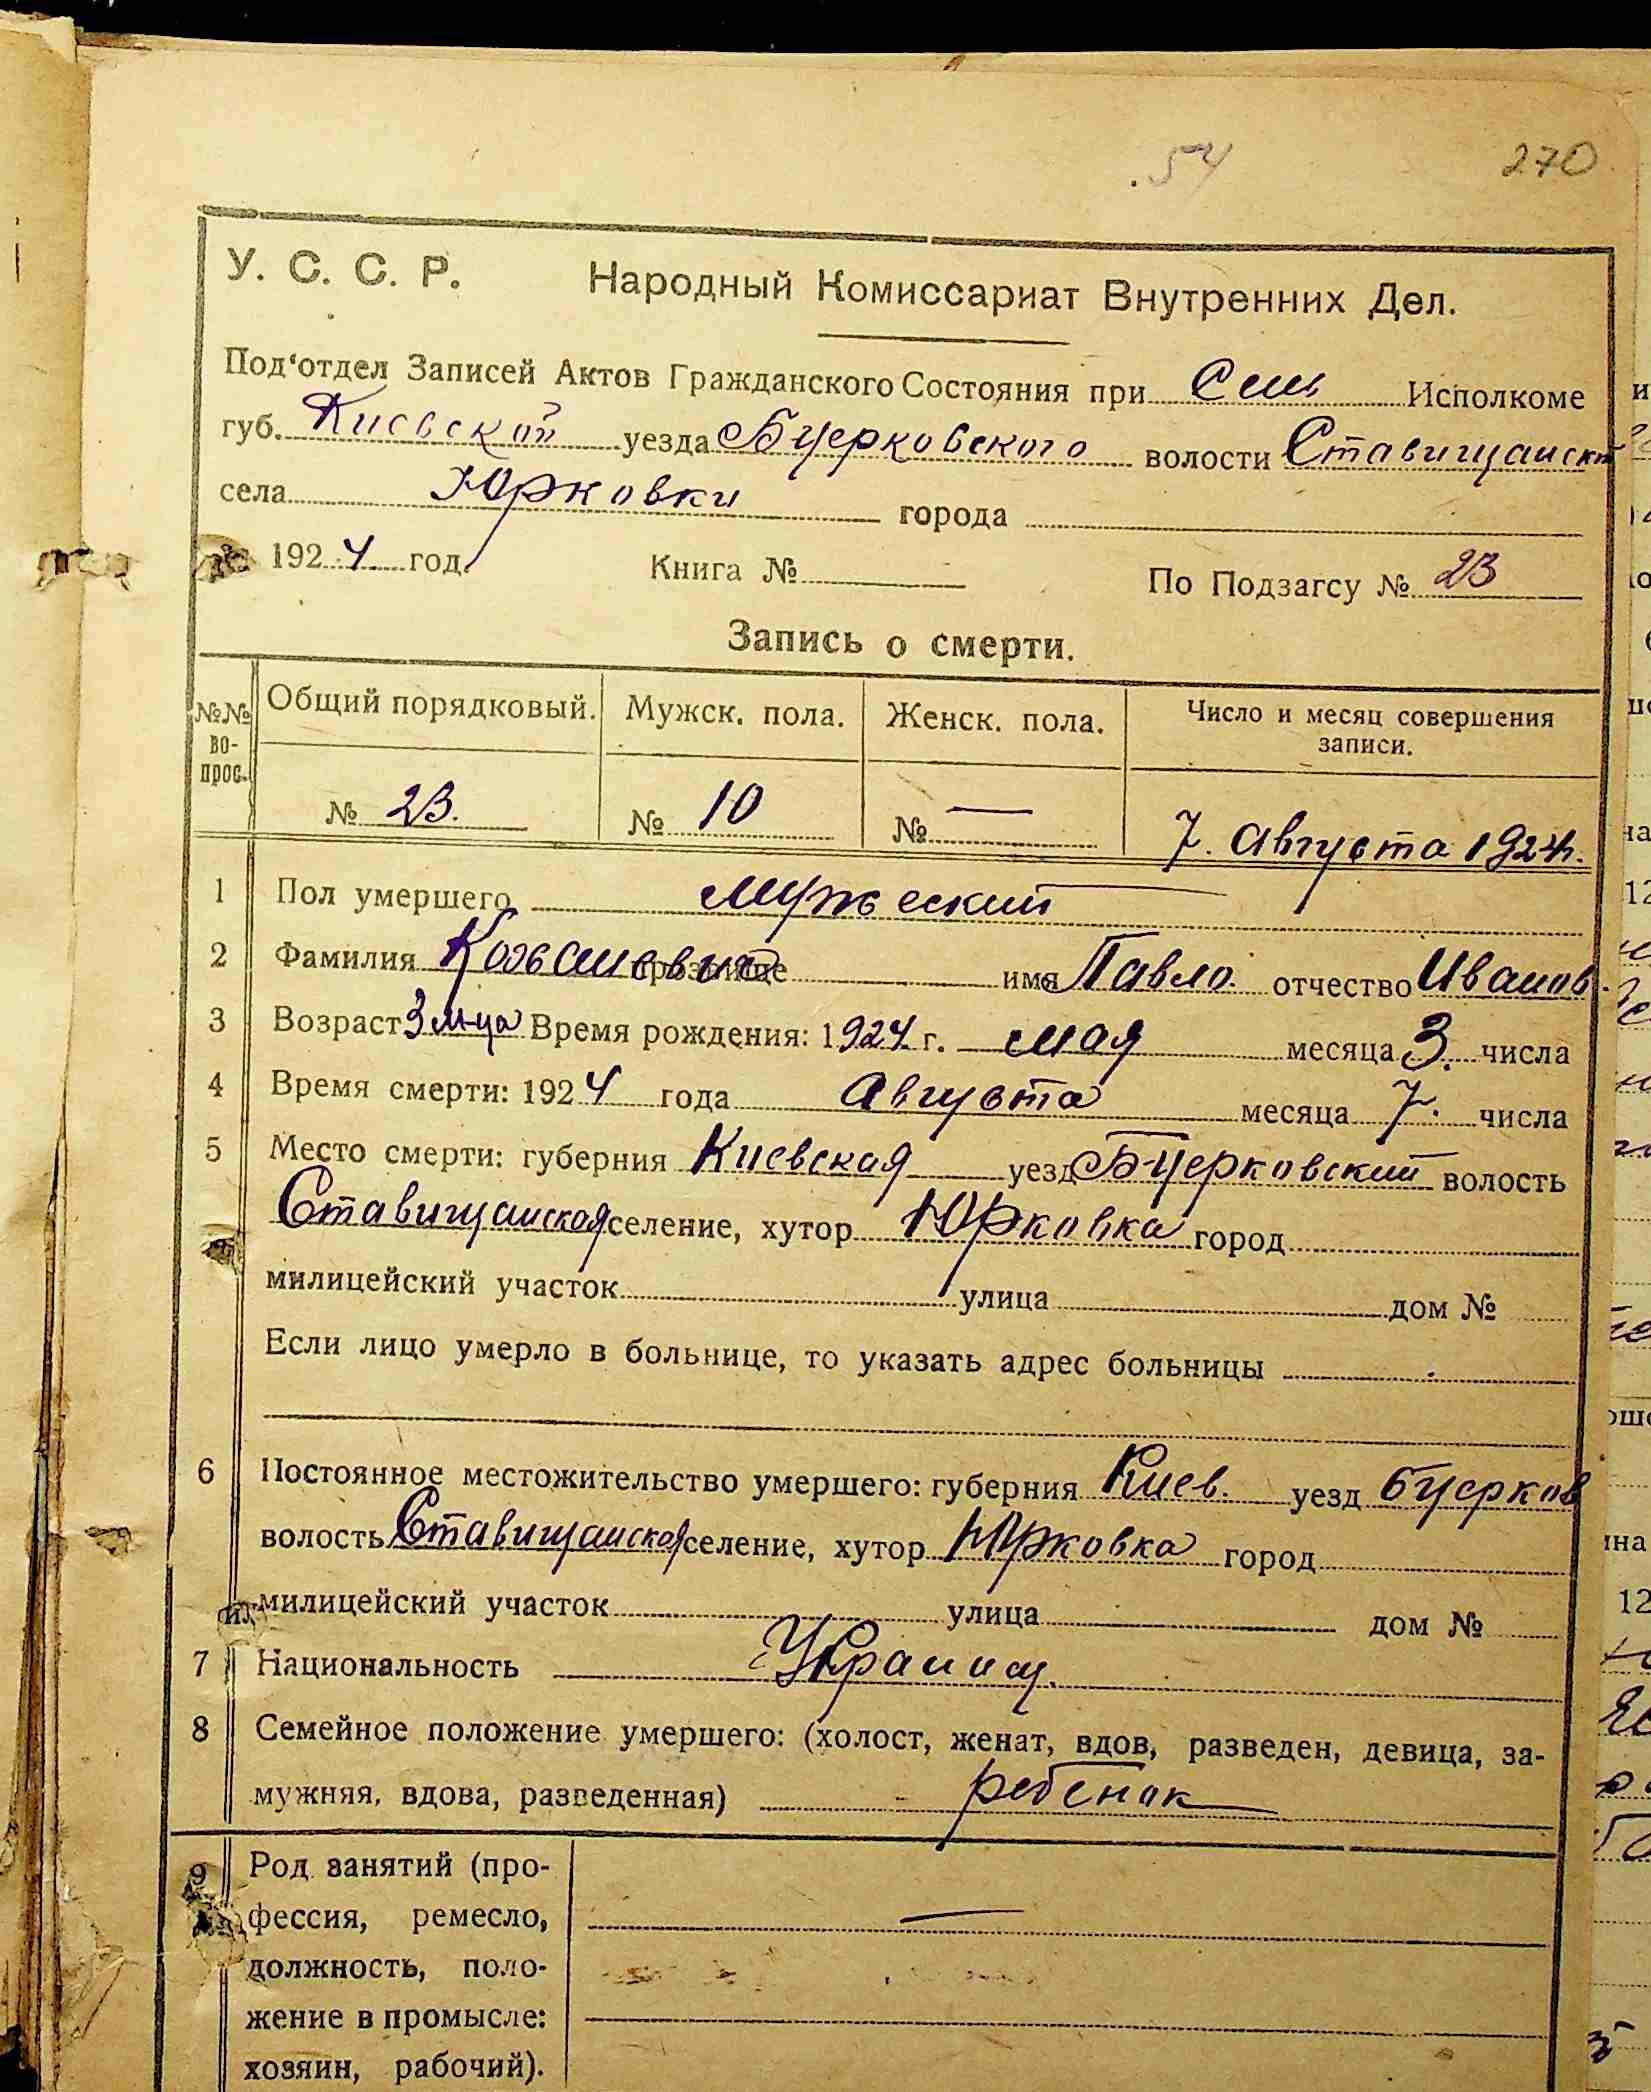 54 270
У. С. С. Р. Народный Комиссариат Внутренних Дел.
Под'отдел Записей Актов Гражданского Состояния при Сель Исполкоме
губ. Киевской уезда Бцерковского волости Ставищанск
села Юрковки города
1924 год. Книга № По Подзагсу № 23
Запись о смерти.
№№ во- прос. Общий порядковый. Мужск. пола. Женск. пола. Число и месяц совершения записи.
№ 23. № 10 № — 7. Августа 1924.
1 Пол умершего мужеский
2 Фамилия прозвище имя Павло. отчество Иванов.
3 Возраст 3 м-ца Время рождения: 1924 г. мая месяца 3. числа
4 Время смерти: 1924 года Августа месяца 7. числа
5 Место смерти: губерния Киевская уезд Б-Церковский волость
Ставищанская селение, хутор Юрковка город
милицейский участок улица дом №
Если лицо умерло в больнице, то указать адрес больницы
6 Постоянное местожительство умершего: губерния Киев. уезд Бцерков
волость Ставищанская селение, хутор Юрковка город
милицейский участок улица дом №
7 Национальность Украинц.
8 Семейное положение умершего: (холост, женат, вдов, разведен, девица, за-
мужняя, вдова, разведенная) ребенок
9 Род занятий (про-
фессия, ремесло, —
должность, поло-
жение в промысле:
хозяин, рабочий).